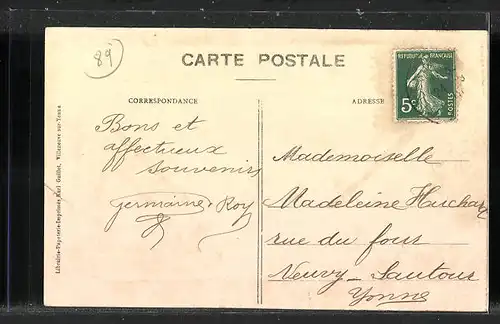 89
CARTE POSTALE
REPUBLIQUE FRANÇAISE
5c
POSTES
CORRESPONDANCE
ADRESSE
Bons et
affectueux
souvenirs
Germaine Roy
Mademoiselle
Madeleine Huchard
rue du four
Neuvy-Sautour
Yonne
Librairie-Papeterie-Imprimerie Karl Guillot, Villeneuve-sur-Yonne